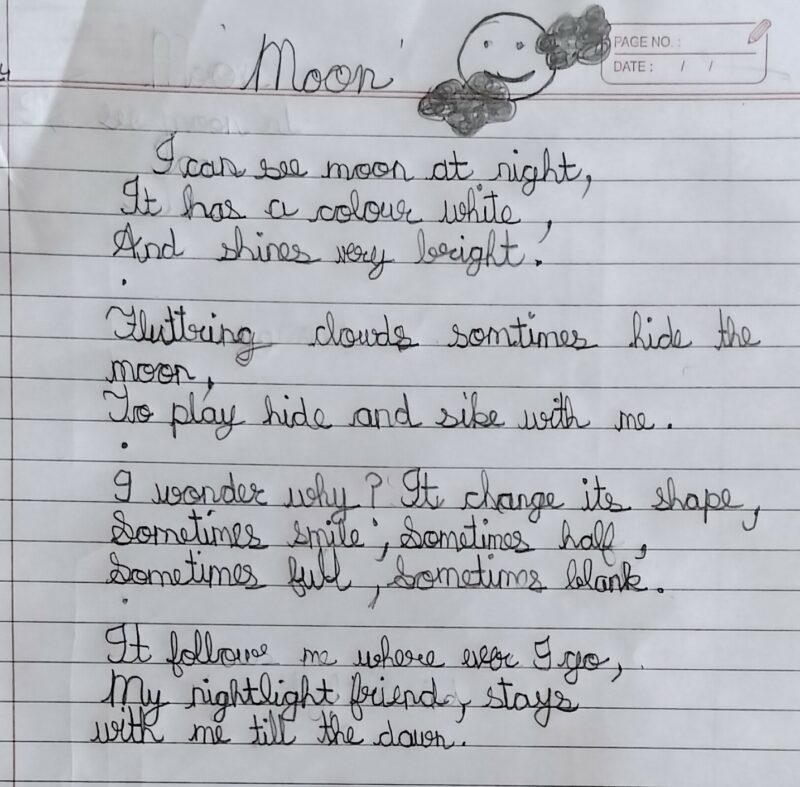 'Moon'
PAGE NO. :
DATE : / /
I can see moon at night,
It has a colour white,
And shines very bright.
Fluttring clouds somtimes hide the
moon,
To play hide and sike with me.
I wonder why? It change its shape,
Sometimes smile, Sometimes half,
Sometimes full, Sometims blank.
It follows me where ever I go,
My nightlight friend, stays
with me till the dawn.